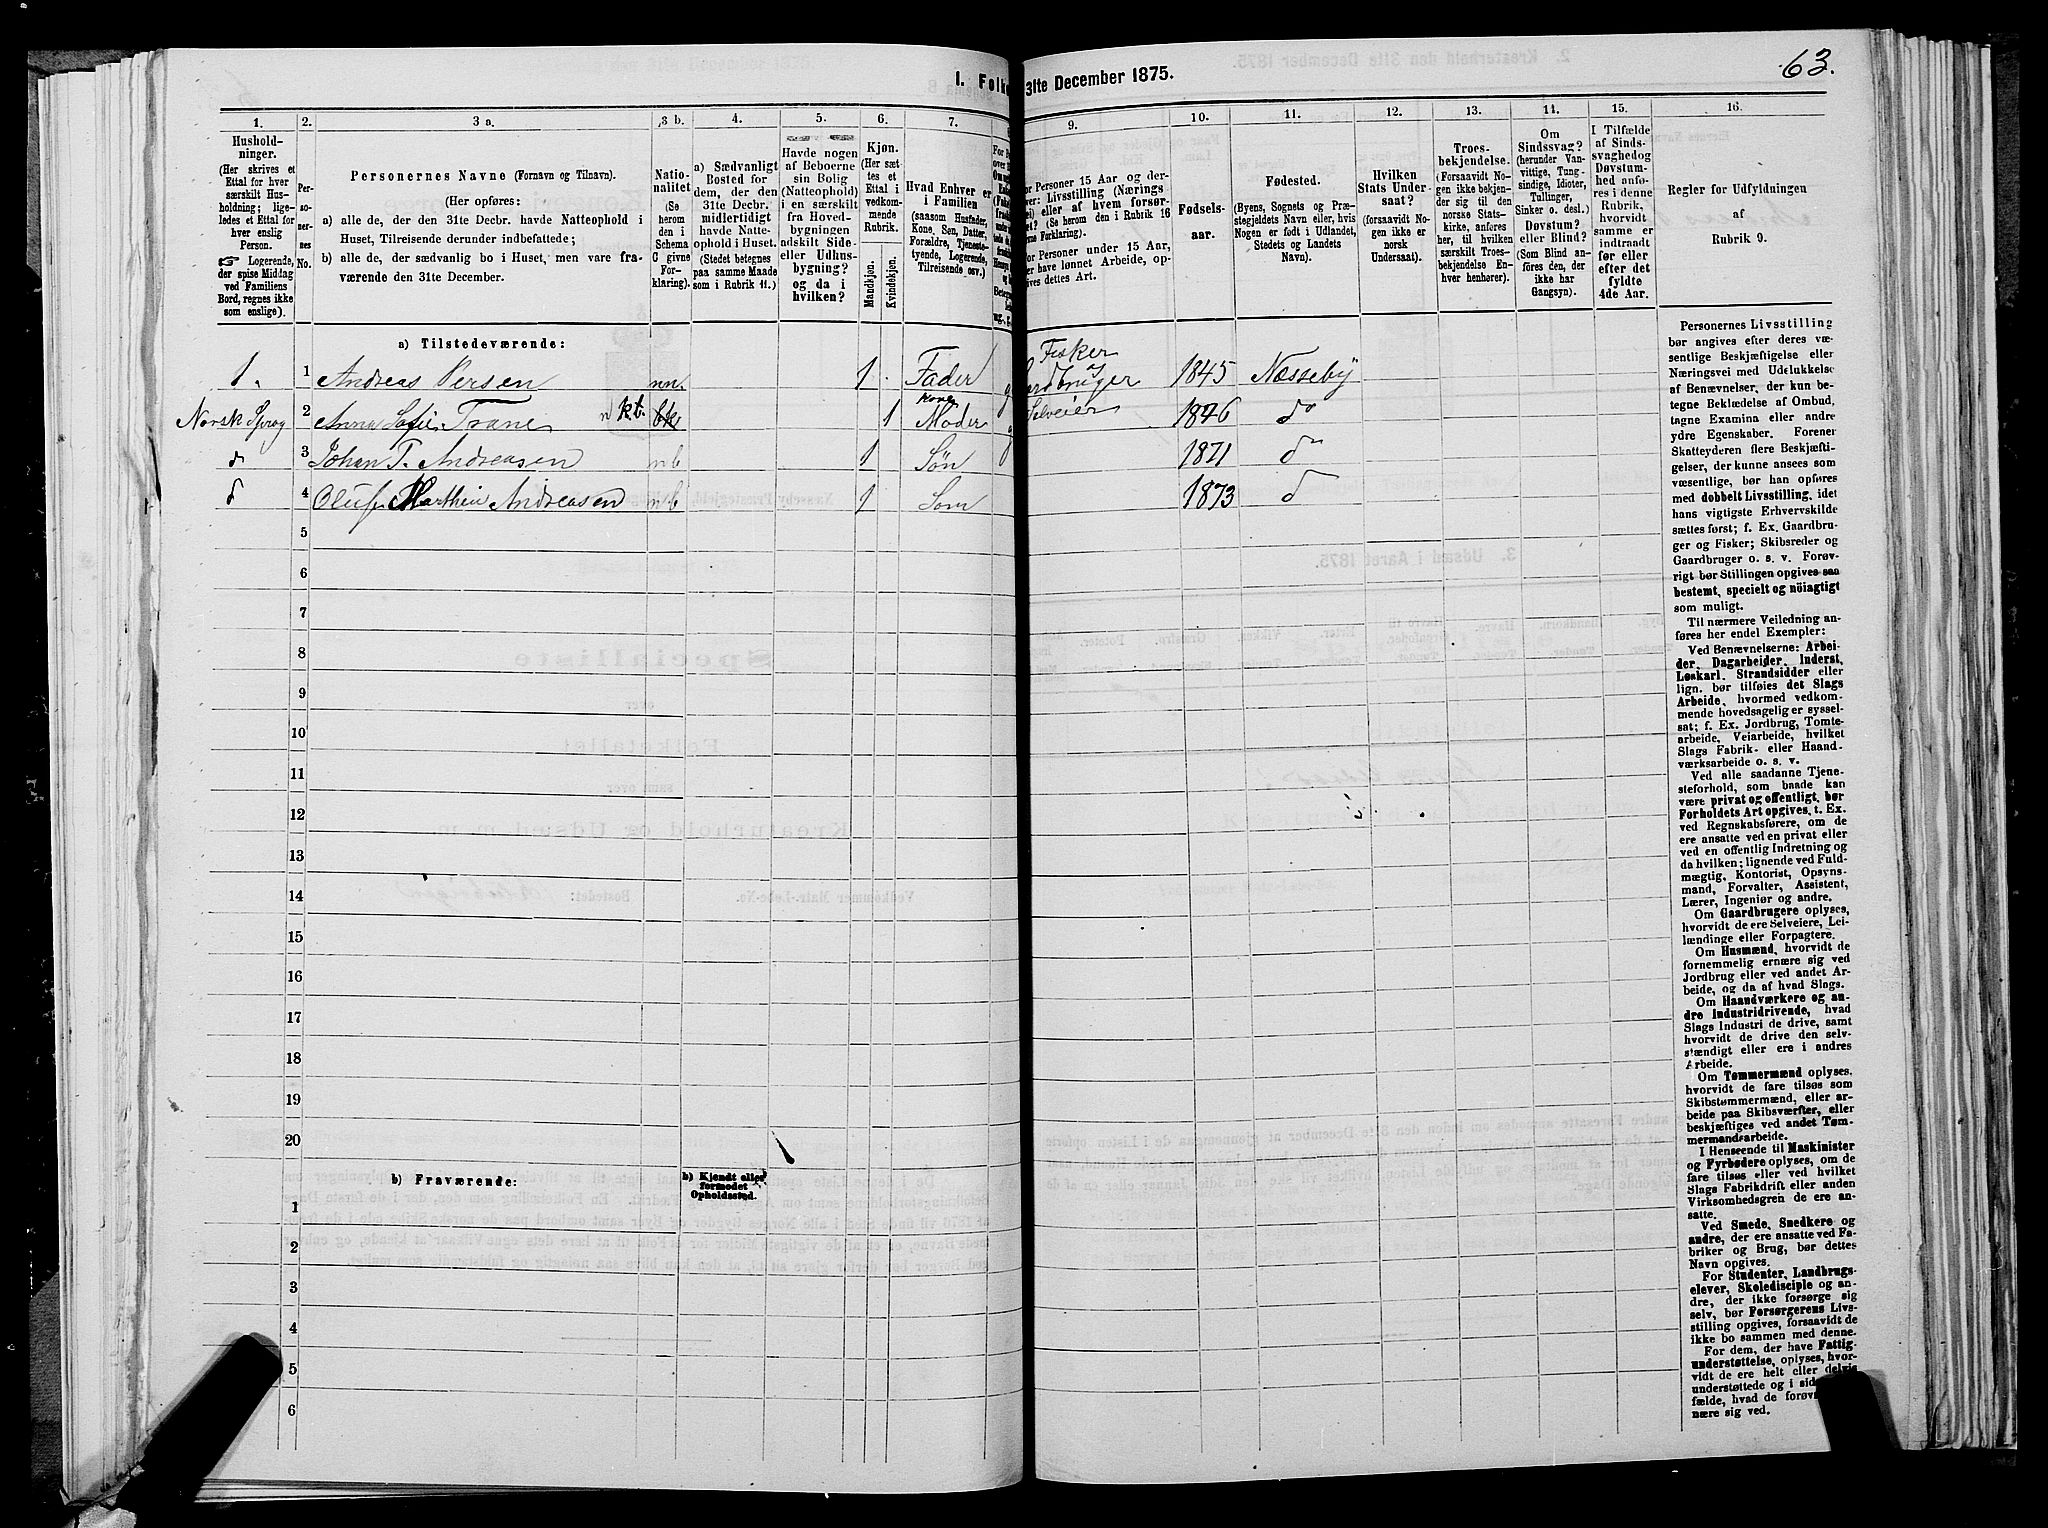 63.
1. Folke
3lte December 1875.
1.
2.
3 a.
3 b.
4.
5.
6.
7.
9.
10.
11.
12.
13.
14.
15.
16.
Hushold-
ninger.
(Her skrives et
Ettal for hver
særskilt Hus-
holdning; lige-
ledes et Ettal for
hver enslig
Person.
☞ Logerende,
der spise Middag
ved Familiens
Bord, regnes ikke
som enslige).
Per-
so-
ner-
nes
No.
Personernes Navne (Fornavn og Tilnavn).
(Her opføres:
a) alle de, der den 31te Decbr. havde Natteophold i
Huset, Tilreisende derunder indbefattede;
b) alle de, der sædvanlig bo i Huset, men vare fra-
værende den 31te December.
Natio-
nalitet
(Se
herom
den i
Schema
C givne
For-
klaring).
a) Sædvanligt
Bosted for
dem, der den
31te Decbr.
midlertidigt
havde Natte-
ophold i Huset.
(Stedet betegnes
paa samme Maade
som i Rubrik 11.)
Havde nogen
af Beboerne
sin Bolig
(Natteophold)
i en særskilt
fra Hoved-
bygningen
adskilt Side-
eller Udhus-
bygning?
og da i
hvilken?
Kjøn.
(Her sæt-
tes et
Ettal i
vedkom-
mende
Rubrik.
Mandkjøn.
Kvindekjøn.
Hvad Enhver er
i Familien
(saasom Husfader,
Kone, Søn, Datter,
Forældre, Tjeneste-
tyende, Logerende,
Tilreisende osv.)
or Personer 15 Aar og der-
ver: Livsstilling (Nærings
ei) eller af hvem forsør-
et? (Se herom den i Rubrik 16
rne Forklaring).
or Personer under 15 Aar,
er have lønnet Arbeide, op-
ives dettes Art.
Fødsels-
aar.
Fødested.
(Byens, Sognets og Præ-
stegjeldets Navn eller, hvis
Nogen er født i Udlandet,
Stedets og Landets
Navn).
Hvilken
Stats Under-
saat?
(forsaavidt No-
gen ikke er
norsk
Undersaat).
Troes-
bekjendelse.
(Forsaavidt No-
gen ikke bekjen-
der sig til den
norske Stats-
kirke, anføres
her, til hvilken
særskilt Troes-
bekjendelse En-
hver henhører).
Om
Sindssvag?
(herunder Van-
vittige, Tung-
sindige, Idioter,
Tullinger,
Sinker o. desl.)
Døvstum?
eller Blind?
(Som Blind an-
føres den, der
ikke har
Gangsyn).
I Tilfælde
af Sinds-
svaghed og
Døvstum-
hed anfø-
res i denne
Rubrik,
hvorvidt
samme er
indtraadt
før eller
efter det
fyldte
4de Aar.
Regler for Udfyldningen
af
Rubrik 9.
a) Tilstedeværende:
1. 1 Andreas Persen nn. 1 Fader Fisker og Gardbruger 1845 Nesseby
Norsk Sprog 2 Anna Sofie Trane n kb. 1 Kone Moder Selveier 1846 do
d 3 Johan T. Andreasen nb 1 Søn 1871 do
d 4 Oluf Marthin Andreasen nb 1 Søn 1873 d
5
6
7
8
9
10
11
12
13
14
15
16
17
18
19
20
b) Fraværende:
b) Kjendt eller
formodet
Opholdssted.
1
2
3
4
5
6
Personernes Livsstilling
bør angives efter deres væ-
sentlige Beskjæftigelse eller
Næringsvei med Udelukkelse
af Benævnelser, der kun be-
tegne Beklædelse af Ombud,
tagne Examina eller andre
ydre Egenskaber. Forener
Skatteyderen flere Beskjæfti-
gelser, der kunne ansees som
væsentlige, bør han opføres
med dobbelt Livsstilling, idet
hans vigtigste Erhvervskilde
sættes først; f. Ex. Gaardbru-
ger og Fisker; Skibsreder og
Gaardbruger o. s. v. Forøv-
rigt bør Stillingen opgives saa
bestemt, specielt og nöiagtigt
som muligt.
Til nærmere Veiledning an-
føres her endel Exempler:
Ved Benævnelserne: Arbei-
der, Dagarbeider, Inderst,
Løskarl, Strandsidder eller
lign. bør tilføies det Slags
Arbeide, hvormed vedkom-
mende hovedsagelig er syssel-
sat; f. Ex. Jordbrug, Tomte-
arbeide, Veiarbeide, hvilket
Slags Fabrik- eller Haand-
værksarbeide o. s. v.
Ved alle saadanne Tjene-
steforhold, som baade kan
være privat og offentligt, bør
Forholdets Art opgives, t. Ex.
ved Regnskabsførere, om de
ere ansatte ved en privat eller
ved en offentlig Indretning og
da hvilken; lignende ved Fuld-
mægtig, Kontorist, Opsyns-
mand, Forvalter, Assistent,
Lærer, Ingeniør og andre.
Om Gaardbrugere oplyses,
hvorvidt de ere Selveiere, Lei-
lændinge eller Forpagtere.
Om Husmænd, hvorvidt de
fornemmelig ernære sig ved
Jordbrug eller ved andet Ar-
beide, og da af hvad Slags.
Om Haandværkere og an-
dre Industridrivende, hvad
Slags Industri de drive, samt
hvorvidt de drive den selv-
stændigt eller ere i andres
Arbeide.
Om Tømmermænd oplyses,
hvorvidt de fare tilsøs som
Skibstømmermænd, eller ar-
beide paa Skibsværfter, eller
beskjæftiges ved andet Tøm-
mermandsarbeide.
I Henseende til Maskinister
og Fyrbødere oplyses, om de
fare tilsøs eller ved hvilket
Slags Fabrikdrift eller anden
Virksomhedsgren de ere an-
satte.
Ved Smede, Snedkere og
andre, der ere ansatte ved Fa-
briker og Brug, bør dettes
Navn opgives.
For Studenter, Landbrugs-
elever, Skoledisciple og an-
dre, der ikke forsørge sig
selv, bør Forsørgerens Livs-
stilling opgives, forsaavidt de
ikke bo sammen med denne.
For dem, der have Fattig-
understøttelse, oplyses, hvor-
vidt de ere helt eller delvis
understøttede og i sid
fælde, hvad de forøv
nære sig ved.